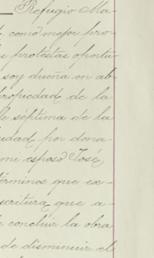 Refugio Ma-
como mejor pro-
protestas oportu-
soy dueña en ab-
ropiedad de la
le septima de la
udad, por dona-
me esposo José,
términos que co-
scritura que a-
concluir la obra
de disminuir el